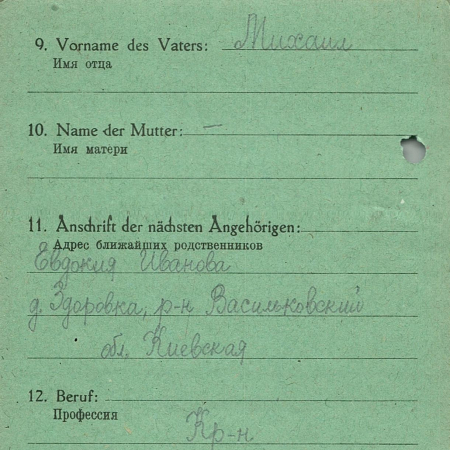 9. Vorname des Vaters: Михаил
Имя отца
10. Name der Mutter: —
Имя матери
11. Anschrift der nächsten Angehörigen:
Адрес ближайших родственников
Евдокия Иванова
д. Здоровка, р-н Васильковский
обл. Киевская
12. Beruf:
Профессия
Кр-н